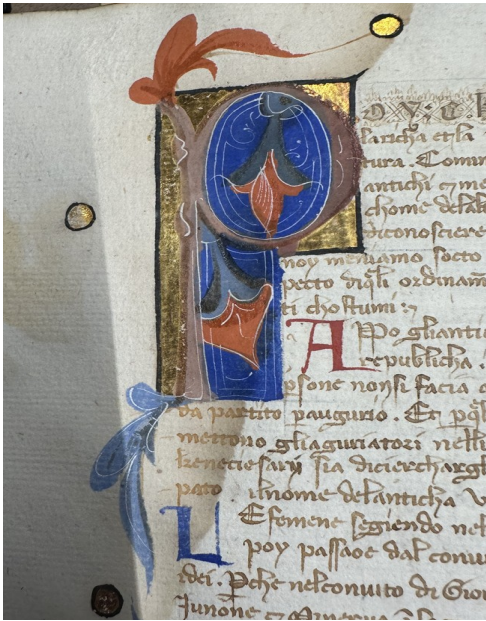 P
laricħa et la
tura. Comin
antichi ⁊ me
chome delab
diconosciere
noy meniamo socto
pecto diq̄li ordinam
ti chostumi :⁊
A Ppo gliantic
republicha .
psone nonsi facia
da partito paugurio. Et pq̄l
mettono gliaguriatori nelli
ſia dicierchargl
pato ilnome delanticha V
L Efemene segiendo nel
poy passaoe dal conui
idei. Pche nelconuito di Gio
Junone ⁊ Minerua